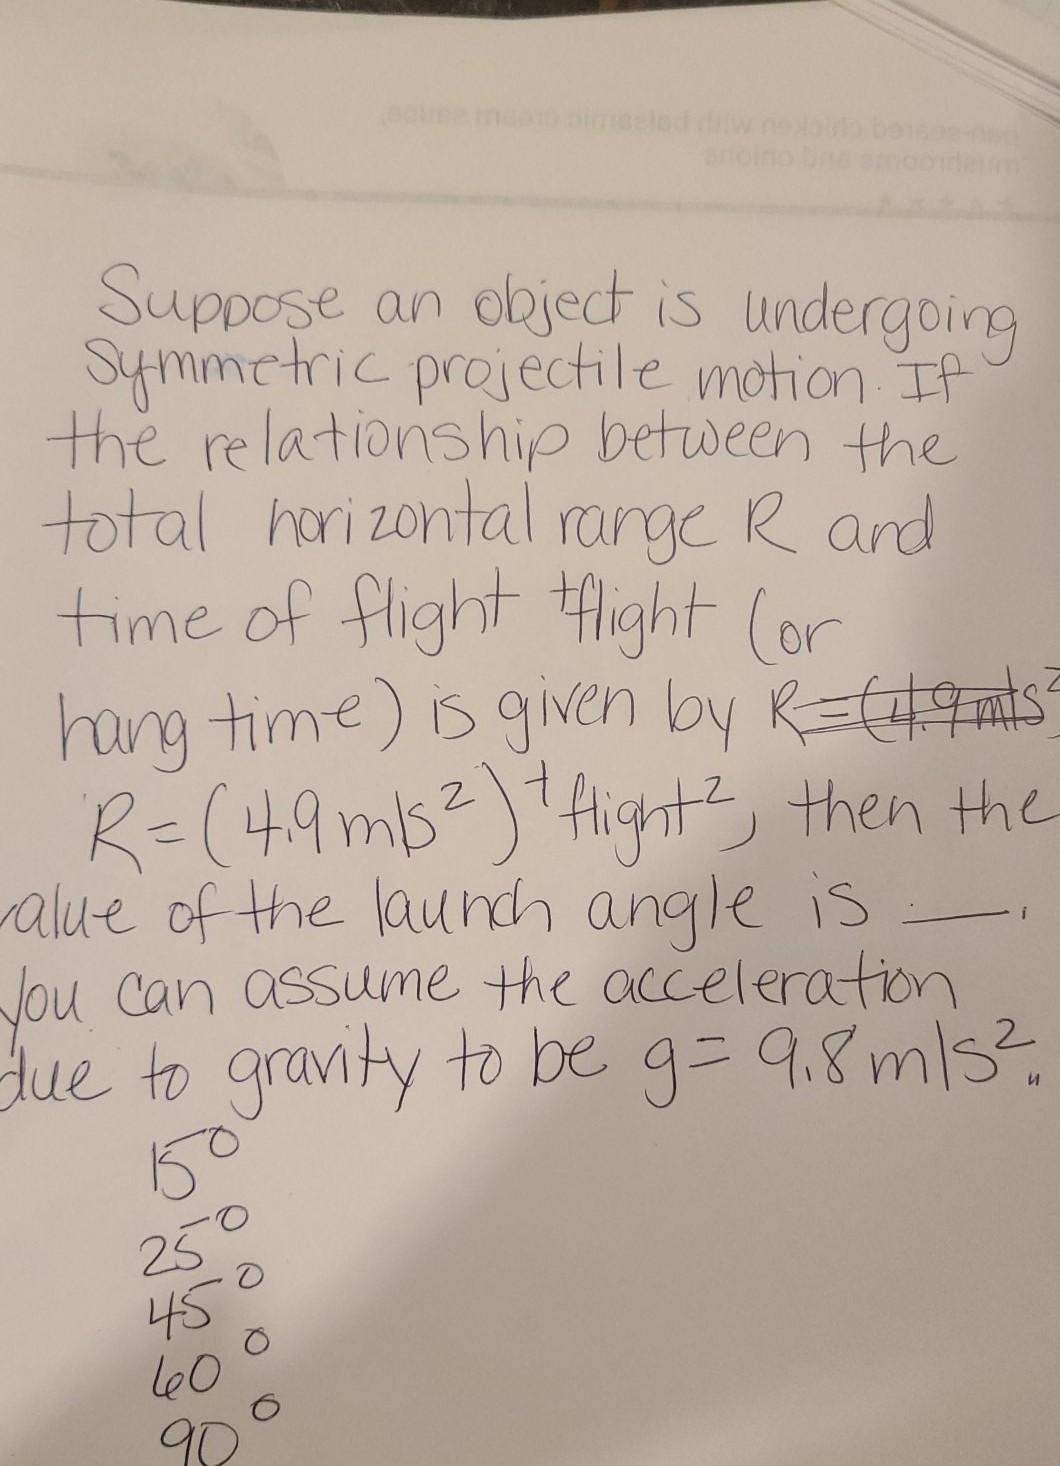 pan-seared chicken with balsamic cream sauce,
mushrooms and onions
Suppose an object is undergoing
symmetric projectile motion. If
the relationship between the
total horizontal range R and
time of flight tflight (or
hang time) is given by R=(4.9m/s²
R=(4.9m/s²) tflight², then the
value of the launch angle is __.
You can assume the acceleration
due to gravity to be g= 9.8m/s².
15°
25°
45°
60°
90°